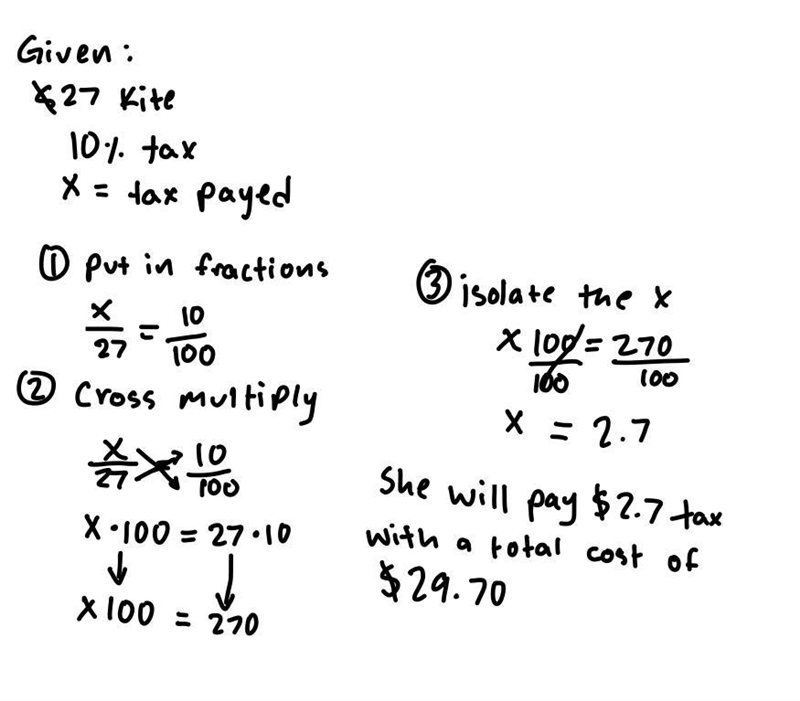 Given:
$27 Kite
10% tax
x = tax payed
① Put in fractions
x/27 = 10/100
② Cross multiply
x/27 10/100
x · 100 = 27 · 10
x 100 = 270
③ isolate the x
x 100/100 = 270/100
x = 2.7
She will pay $2.7 tax
with a total cost of
$29.70